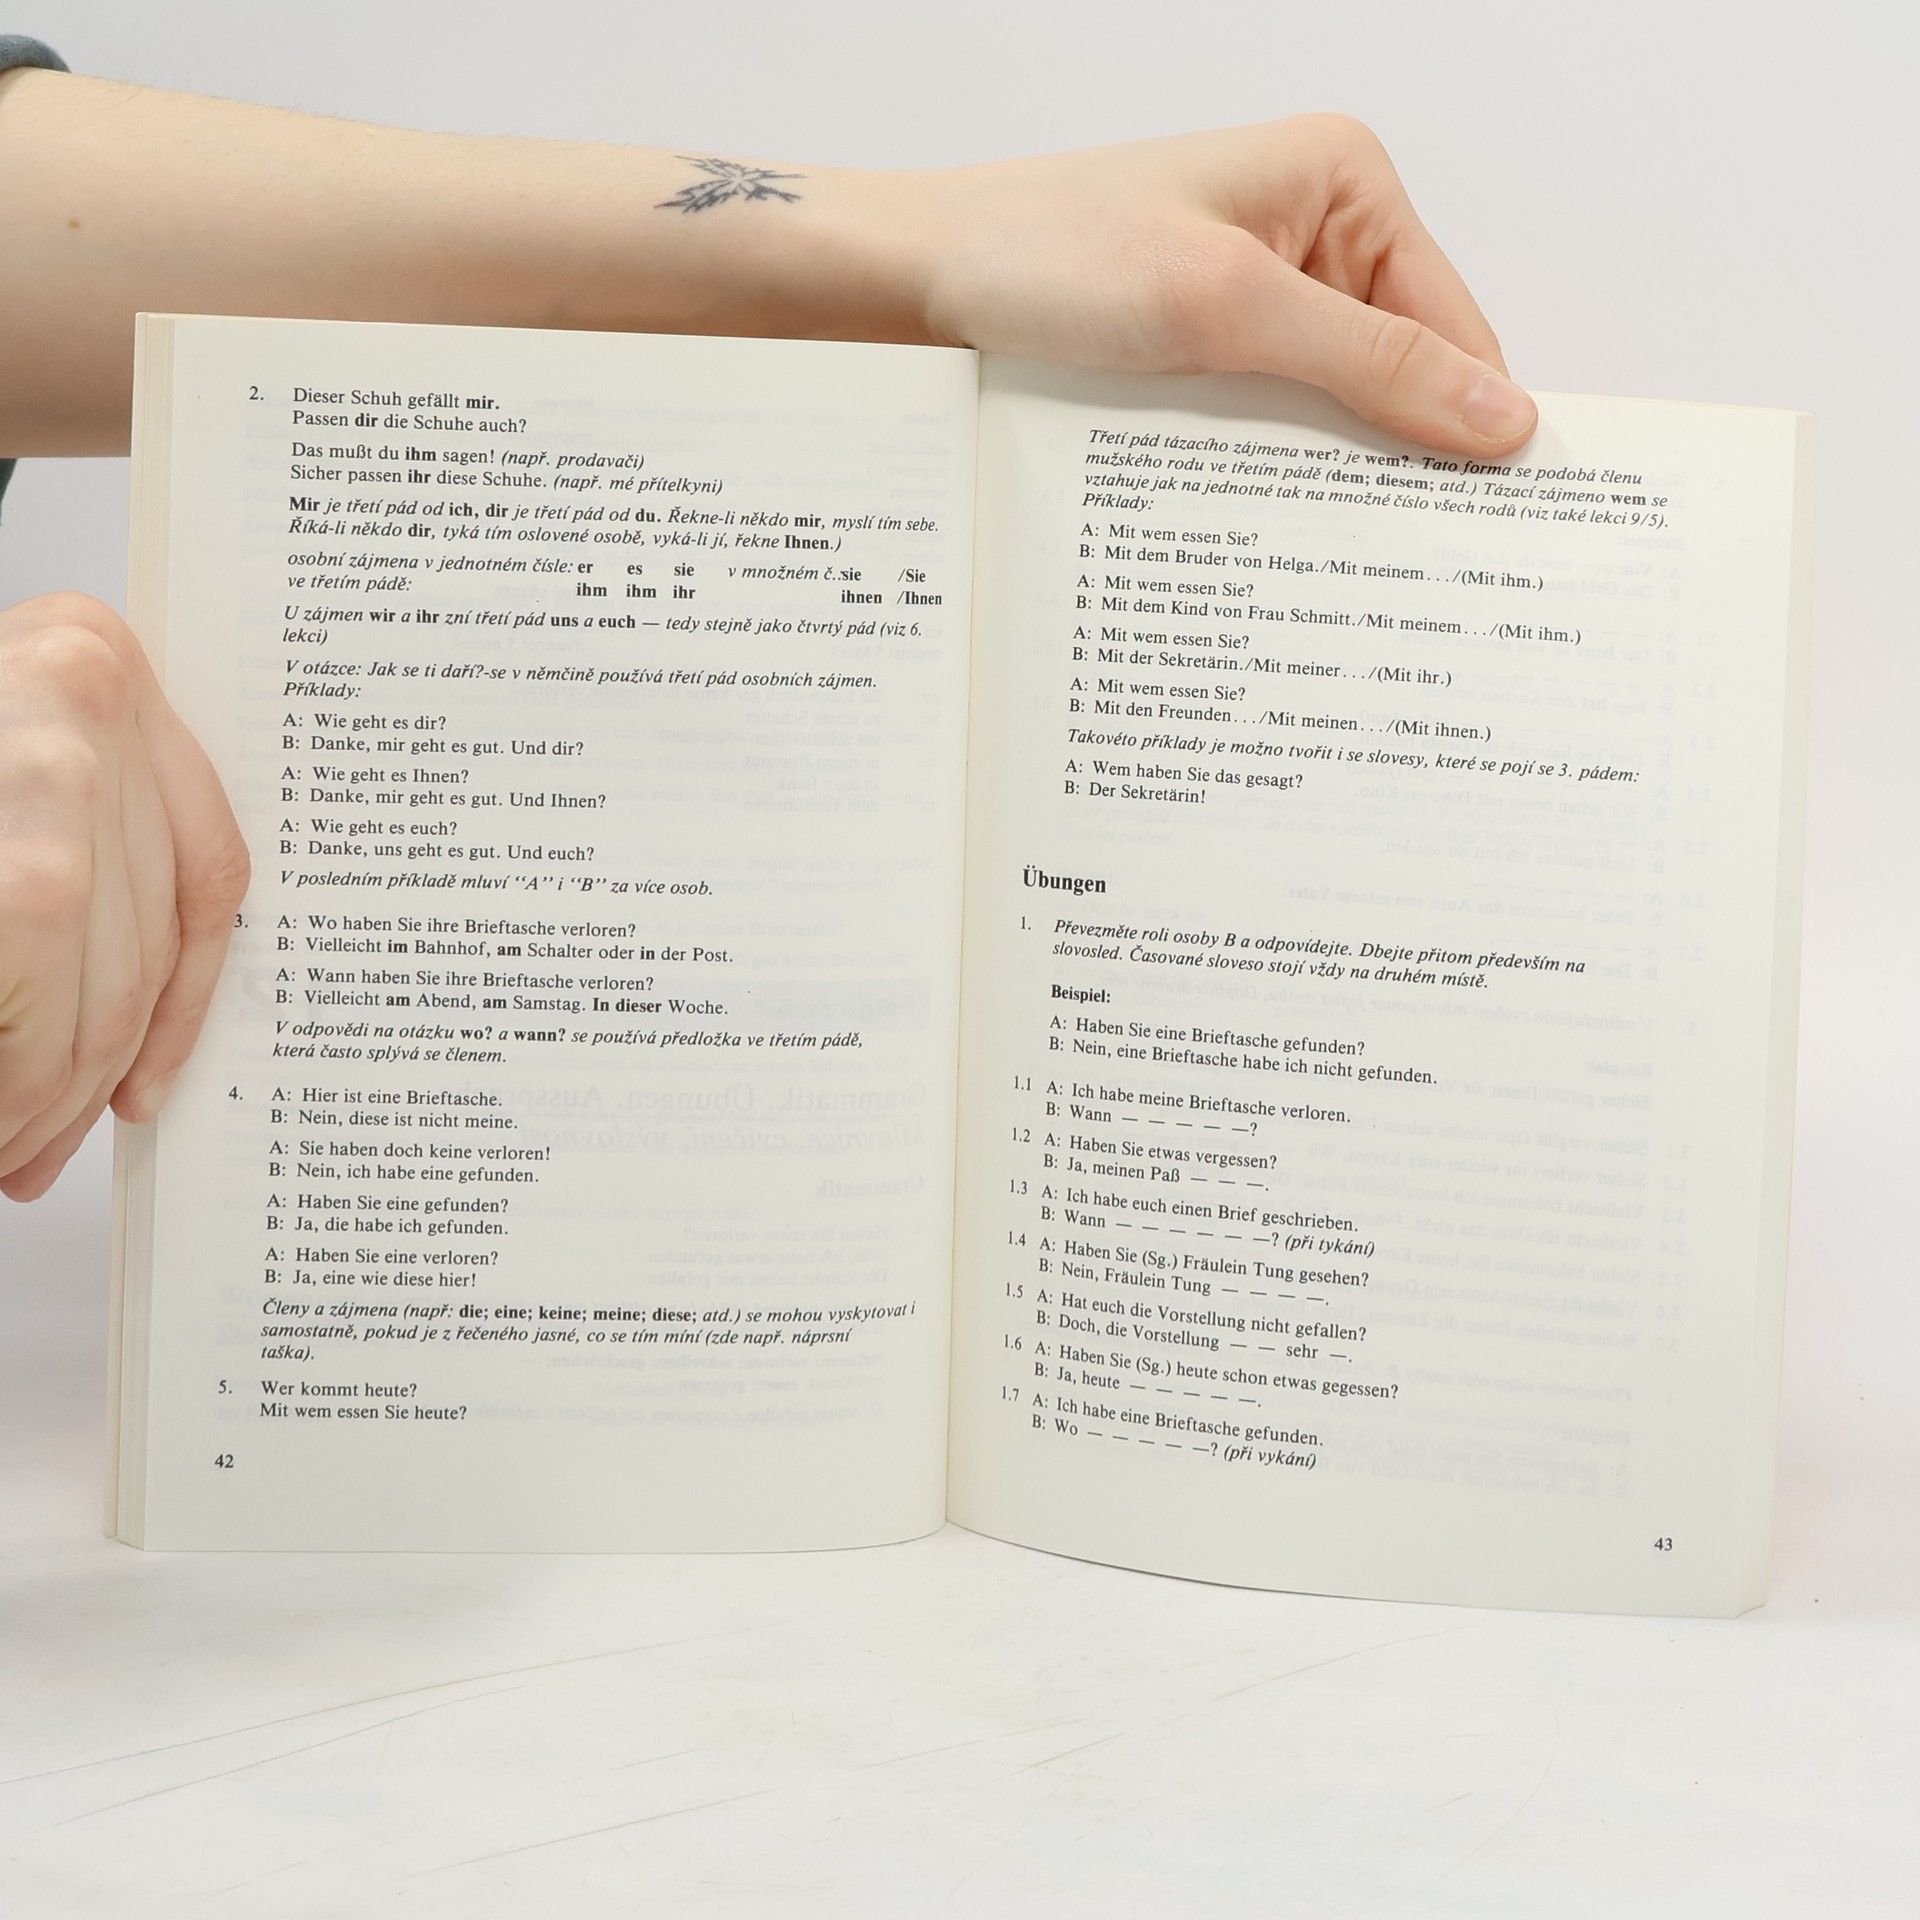 2. Dieser Schuh gefällt mir.
Passen dir die Schuhe auch?
Das mußt du ihm sagen! (např. prodavači)
Sicher passen ihr diese Schuhe. (např. mé přítelkyni)
Mir je třetí pád od ich, dir je třetí pád od du. Řekne-li někdo mir, myslí tím sebe.
Říká-li někdo dir, tyká tím oslovené osobě, vyká-li jí, řekne Ihnen.)
osobní zájmena v jednotném čísle: er es sie v množném č.:sie /Sie
ve třetím pádě: ihm ihm ihr ihnen /Ihnen
U zájmen wir a ihr zní třetí pád uns a euch — tedy stejně jako čtvrtý pád (viz 6.
lekci)
V otázce: Jak se ti daří?-se v němčině používá třetí pád osobních zájmen.
Příklady:
A: Wie geht es dir?
B: Danke, mir geht es gut. Und dir?
A: Wie geht es Ihnen?
B: Danke, mir geht es gut. Und Ihnen?
A: Wie geht es euch?
B: Danke, uns geht es gut. Und euch?
V posledním příkladě mluví “A” i “B” za více osob.
3. A: Wo haben Sie ihre Brieftasche verloren?
B: Vielleicht im Bahnhof, am Schalter oder in der Post.
A: Wann haben Sie ihre Brieftasche verloren?
B: Vielleicht am Abend, am Samstag. In dieser Woche.
V odpovědi na otázku wo? a wann? se používá předložka ve třetím pádě,
která často splývá se členem.
4. A: Hier ist eine Brieftasche.
B: Nein, diese ist nicht meine.
A: Sie haben doch keine verloren!
B: Nein, ich habe eine gefunden.
A: Haben Sie eine gefunden?
B: Ja, die habe ich gefunden.
A: Haben Sie eine verloren?
B: Ja, eine wie diese hier!
Členy a zájmena (např: die; eine; keine; meine; diese; atd.) se mohou vyskytovat i
samostatně, pokud je z řečeného jasné, co se tím míní (zde např. náprsní
taška).
5. Wer kommt heute?
Mit wem essen Sie heute?
42
Třetí pád tázacího zájmena wer? je wem?. Tato forma se podobá členu
mužského rodu ve třetím pádě (dem; diesem; atd.) Tázací zájmeno wem se
vztahuje jak na jednotné tak na množné číslo všech rodů (viz také lekci 9/5).
Příklady:
A: Mit wem essen Sie?
B: Mit dem Bruder von Helga./Mit meinem . . . /(Mit ihm.)
A: Mit wem essen Sie?
B: Mit dem Kind von Frau Schmitt./Mit meinem . . . /(Mit ihm.)
A: Mit wem essen Sie?
B: Mit der Sekretärin./Mit meiner . . . /(Mit ihr.)
A: Mit wem essen Sie?
B: Mit den Freunden . . . /Mit meinen . . . /(Mit ihnen.)
Takovéto příklady je možno tvořit i se slovesy, které se pojí se 3. pádem:
A: Wem haben Sie das gesagt?
B: Der Sekretärin!
Übungen
1. Převezměte roli osoby B a odpovídejte. Dbejte přitom především na
slovosled. Časované sloveso stojí vždy na druhém místě.
Beispiel:
A: Haben Sie eine Brieftasche gefunden?
B: Nein, eine Brieftasche habe ich nicht gefunden.
1.1 A: Ich habe meine Brieftasche verloren.
B: Wann — — — — —?
1.2 A: Haben Sie etwas vergessen?
B: Ja, meinen Paß — — —.
1.3 A: Ich habe euch einen Brief geschrieben.
B: Wann — — — — — —? (při tykání)
1.4 A: Haben Sie (Sg.) Fräulein Tung gesehen?
B: Nein, Fräulein Tung — — — —.
1.5 A: Hat euch die Vorstellung nicht gefallen?
B: Doch, die Vorstellung — — sehr —.
1.6 A: Haben Sie (Sg.) heute schon etwas gegessen?
B: Ja, heute — — — — —.
1.7 A: Ich habe eine Brieftasche gefunden.
B: Wo — — — — —? (při vykání)
43